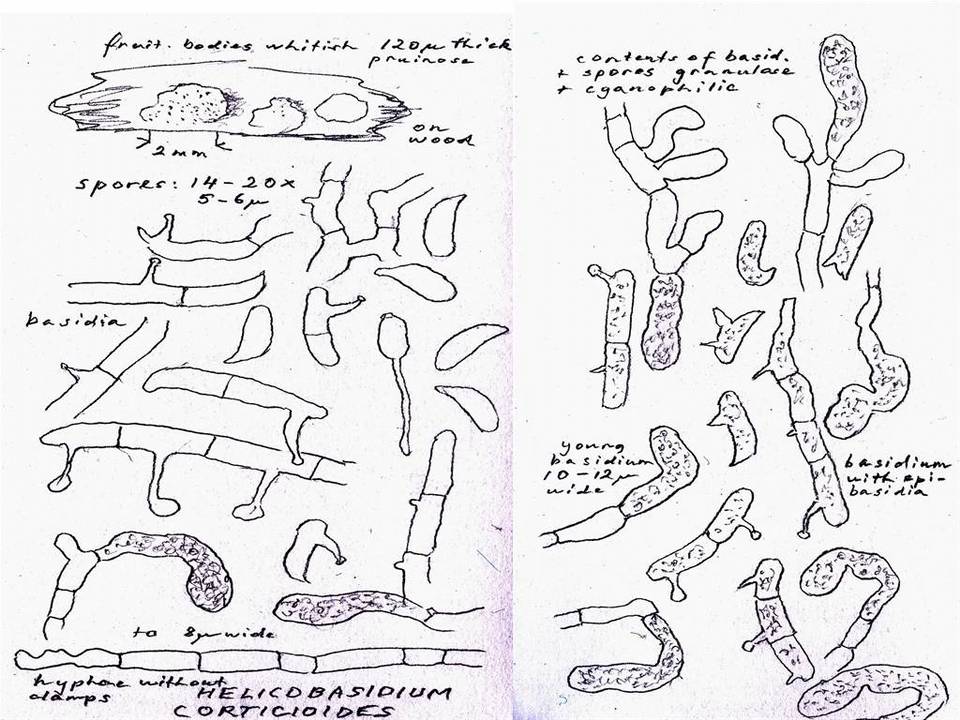 fruit. bodies whitish 120µ thick
pruinose
on
wood
2 mm
spores: 14-20x
5-6µ
basidia
to 8µ wide
hyphae without
clamps
HELICOBASIDIUM
CORTICIOIDES
contents of basid.
+ spores granulase
+ cyanophilic
young
basidium
10-12µ
wide
basidium
with epi-
basidia